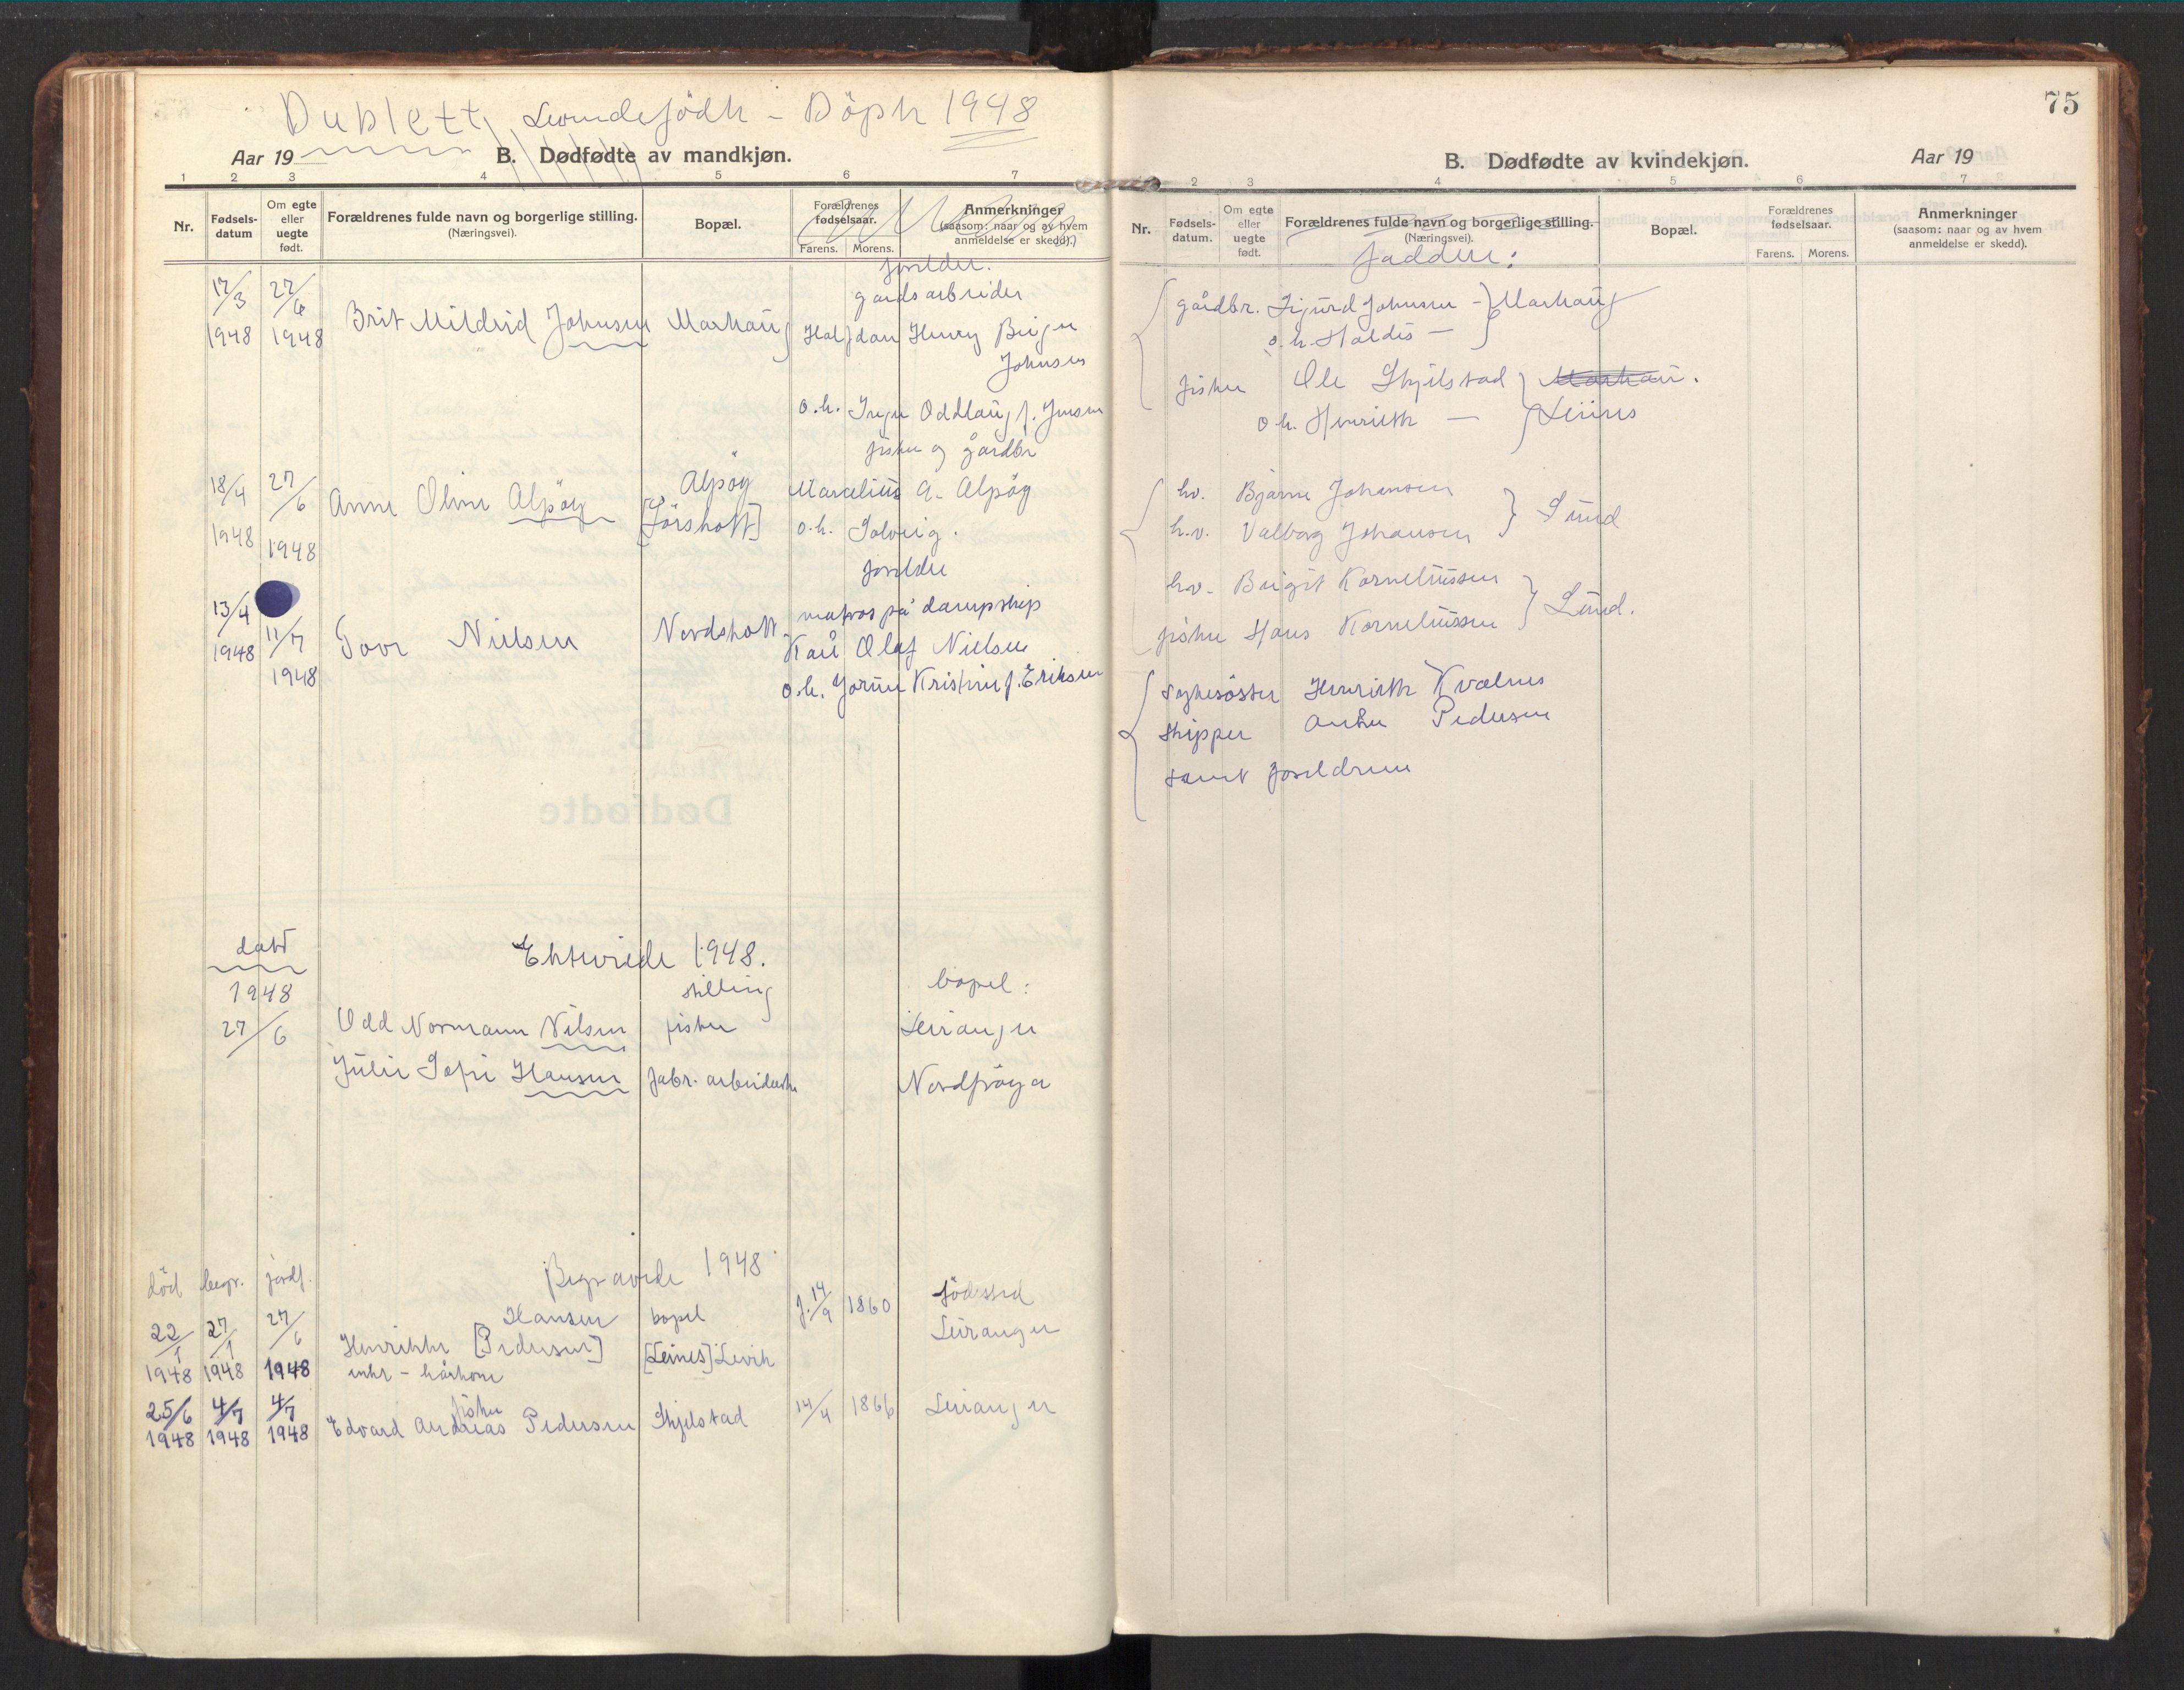 Dublett, Levendefödte - Döpte 1948
Aar 19
B. Dødfødte av mandkjøn.
1 2 3 4 5 6 7
Nr.
Fødsels-datum
Om egte eller uegte født.
Forældrenes fulde navn og borgerlige stilling.
(Næringsvei).
Bopæl.
Forældrenes fødselsaar.
Farens. Morens.
Anmerkninger
(saasom: naar og av hvem anmeldelse er skedd).
foreldre.
17/3 1948 27/6 1948 Brit Mildrid Johnsen Marhaug
gårdsarbeider
Halfdan Henry Birger
Johnsen
o.h. Inger Oddlaug f. Jensen
fisker og gårdbr
18/4 1948 27/6 1948 Anne Oline Alpöy Alpöy
[Jörshott]
Marselius A. Alpöy
o.h. Solveig.
foreldre
13/4 1948 11/7 1948 Tove Nielsen Nordskott
matros på dampskip
Kåre Olaf Nielsen
o.h. Jorun Kristine f. Eriksen
dato
Ektevidde 1948.
1948
stilling
bopel:
27/6 Odd Normann Nilsen fisker Leiranger
Julie Sofie Hansen fabr. arbeiderske Nordfröya
Begravede 1948
död begr. jordf.
bopel
födested
22/1 1948 27/1 1948 27/6 1948 Henrikke Hansen [Pedersen]
enke - kårkone
[Leines] Levik
f. 14/9 1860
Leiranger
25/6 1948 4/7 1948 4/7 1948
fisker
Edvard Andreas Pedersen Skjelstad 14/4 1866 Leiranger
75
B. Dødfødte av kvindekjøn.
Aar 19
2 3 4 5 6 7
Nr.
Fødsels-datum.
Om egte eller uegte født.
Forældrenes fulde navn og borgerlige stilling.
(Næringsvei).
Bopæl.
Forældrenes fødselsaar.
Farens. Morens.
Anmerkninger
(saasom: naar og av hvem anmeldelse er skedd).
faddere:
gårdbr. Sigurd Johnsen - Marhaug
o.h. Haldis -
fisker Ole Skjelstad Marhau.
o.h. Henriette - Leines
hv. Bjarne Johansen
h.v. Valborg Johansen Sund
hv. Birgit Korneliussen
fisker Hans Korneliussen Lund.
sykesöster Henriette Kvalnes
skipper Anker Pedersen
samt foreldrene